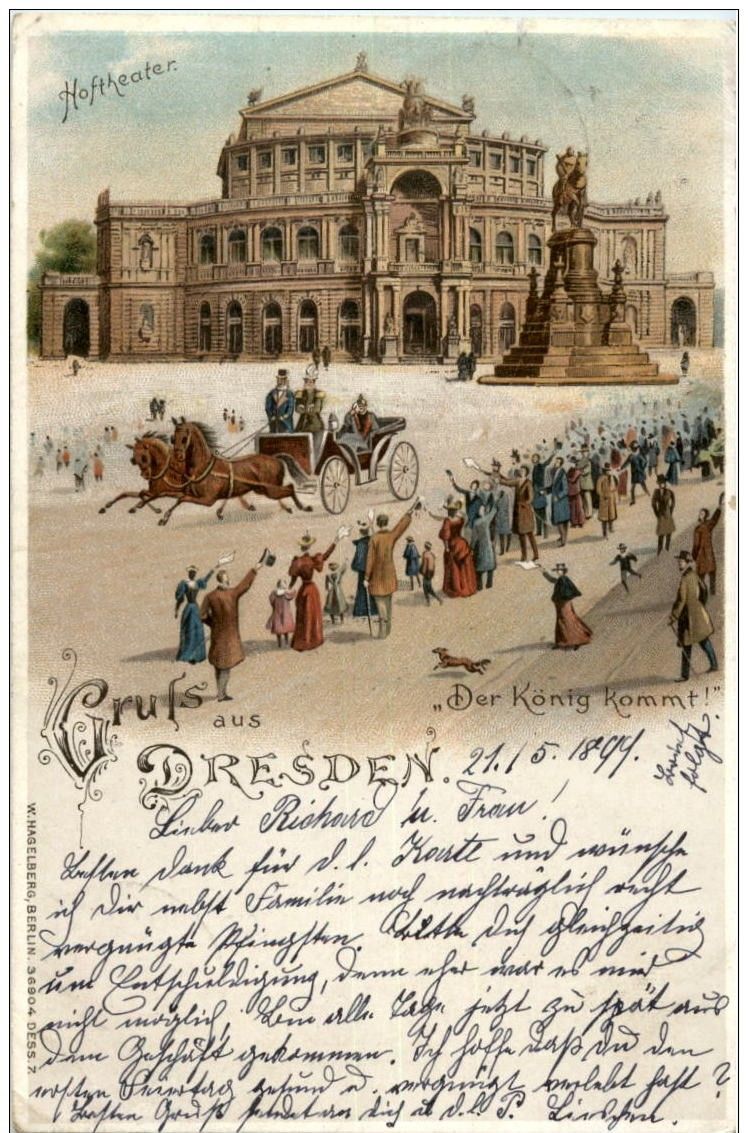 Hoftheater.
„Der König kommt!"
Gruss aus
DRESDEN.
21./5. 1899.
Brief
folgt.
Lieber Richard u. Frau!
Besten Dank für d. l. Karte und wünsche
ich Dir nebst Familie noch nachträglich recht
vergnügte Pfingsten. Bitte Dich gleichzeitig
um Entschuldigung, denn eher war es mir
nicht möglich, bin alle Tage jetzt zu spät aus
dem Geschäft gekommen. Ich hoffe daß Du den
ersten Feiertag gesund u. vergnügt verlebt hast?
Besten Gruß sendet an Dich u. d. l.
W. HAGELBERG, BERLIN. 36904 DESS. 7.